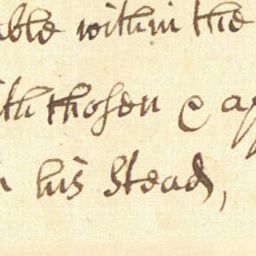 able within the
ith thosen & ap
n his Stead,